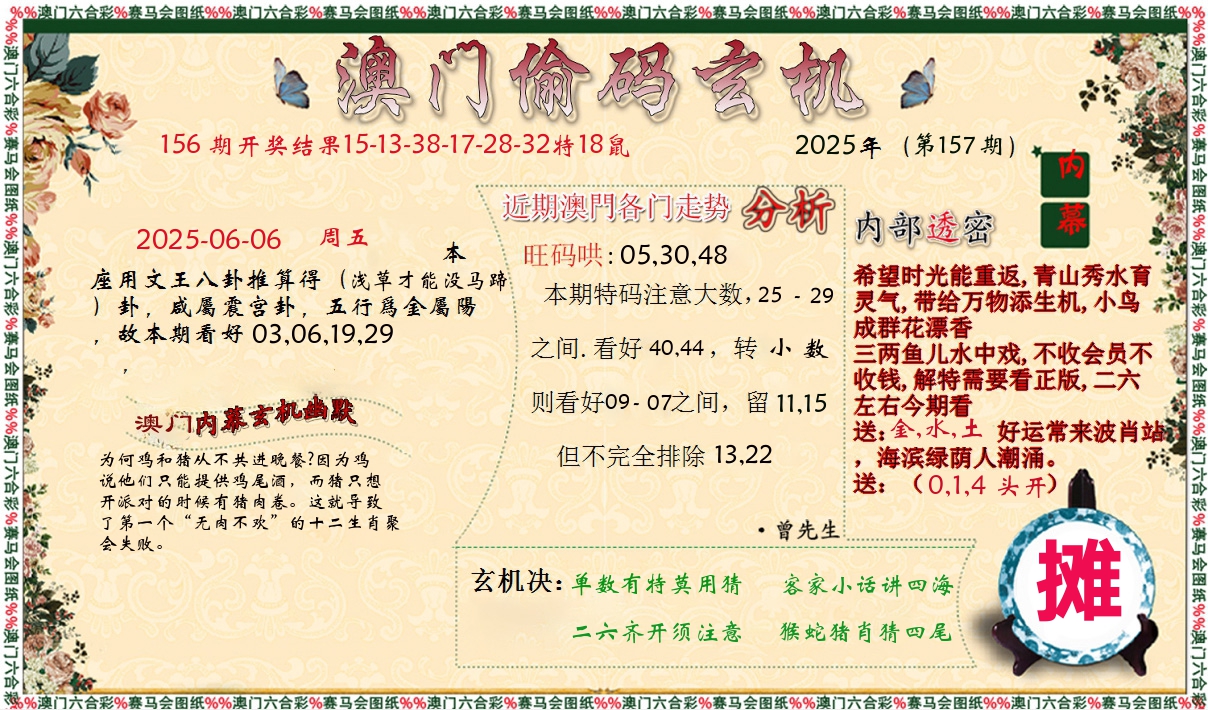 %%澳门六合彩%赛马会图纸%%澳门六合彩%赛马会图纸%%澳门六合彩%赛马会图纸%%澳门六合彩%赛马会图纸%%澳门六合彩%赛马会图纸%%澳门六合彩%赛马会图纸%%
澳门偷码玄机
156 期开奖结果15-13-38-17-28-32特18鼠
2025年（第157期）
内幕
2025-06-06 周五
本
座用文王八卦推算得（浅草才能没马蹄
）卦，咸屬震宫卦，五行爲金屬陽
，故本期看好 03,06,19,29
，
澳门内幕玄机幽默
为何鸡和猪从不共进晚餐?因为鸡
说他们只能提供鸡尾酒，而猪只想
开派对的时候有猪肉卷。这就导致
了第一个“无肉不欢”的十二生肖聚
会失败。
近期澳門各门走势 分析
旺码哄: 05,30,48
本期特码注意大数, 25 - 29
之间. 看好 40,44 ，转 小 数
则看好09 - 07之间，留 11,15
但不完全排除 13,22
·曾先生
内部透密
希望时光能重返, 青山秀水育
灵气, 带给万物添生机, 小鸟
成群花漂香
三两鱼儿水中戏, 不收会员不
收钱, 解特需要看正版, 二六
左右今期看
送: 金,水,土 好运常来波肖站
，海滨绿荫人潮涌。
送: （0,1,4 头开）
玄机决: 单数有特莫用猜 客家小话讲四海
二六齐开须注意 猴蛇猪肖猜四尾
摊
%%澳门六合彩%赛马会图纸%%澳门六合彩%赛马会图纸%%澳门六合彩%赛马会图纸%%澳门六合彩%赛马会图纸%%澳门六合彩%赛马会图纸%%澳门六合彩%赛马会图纸%%